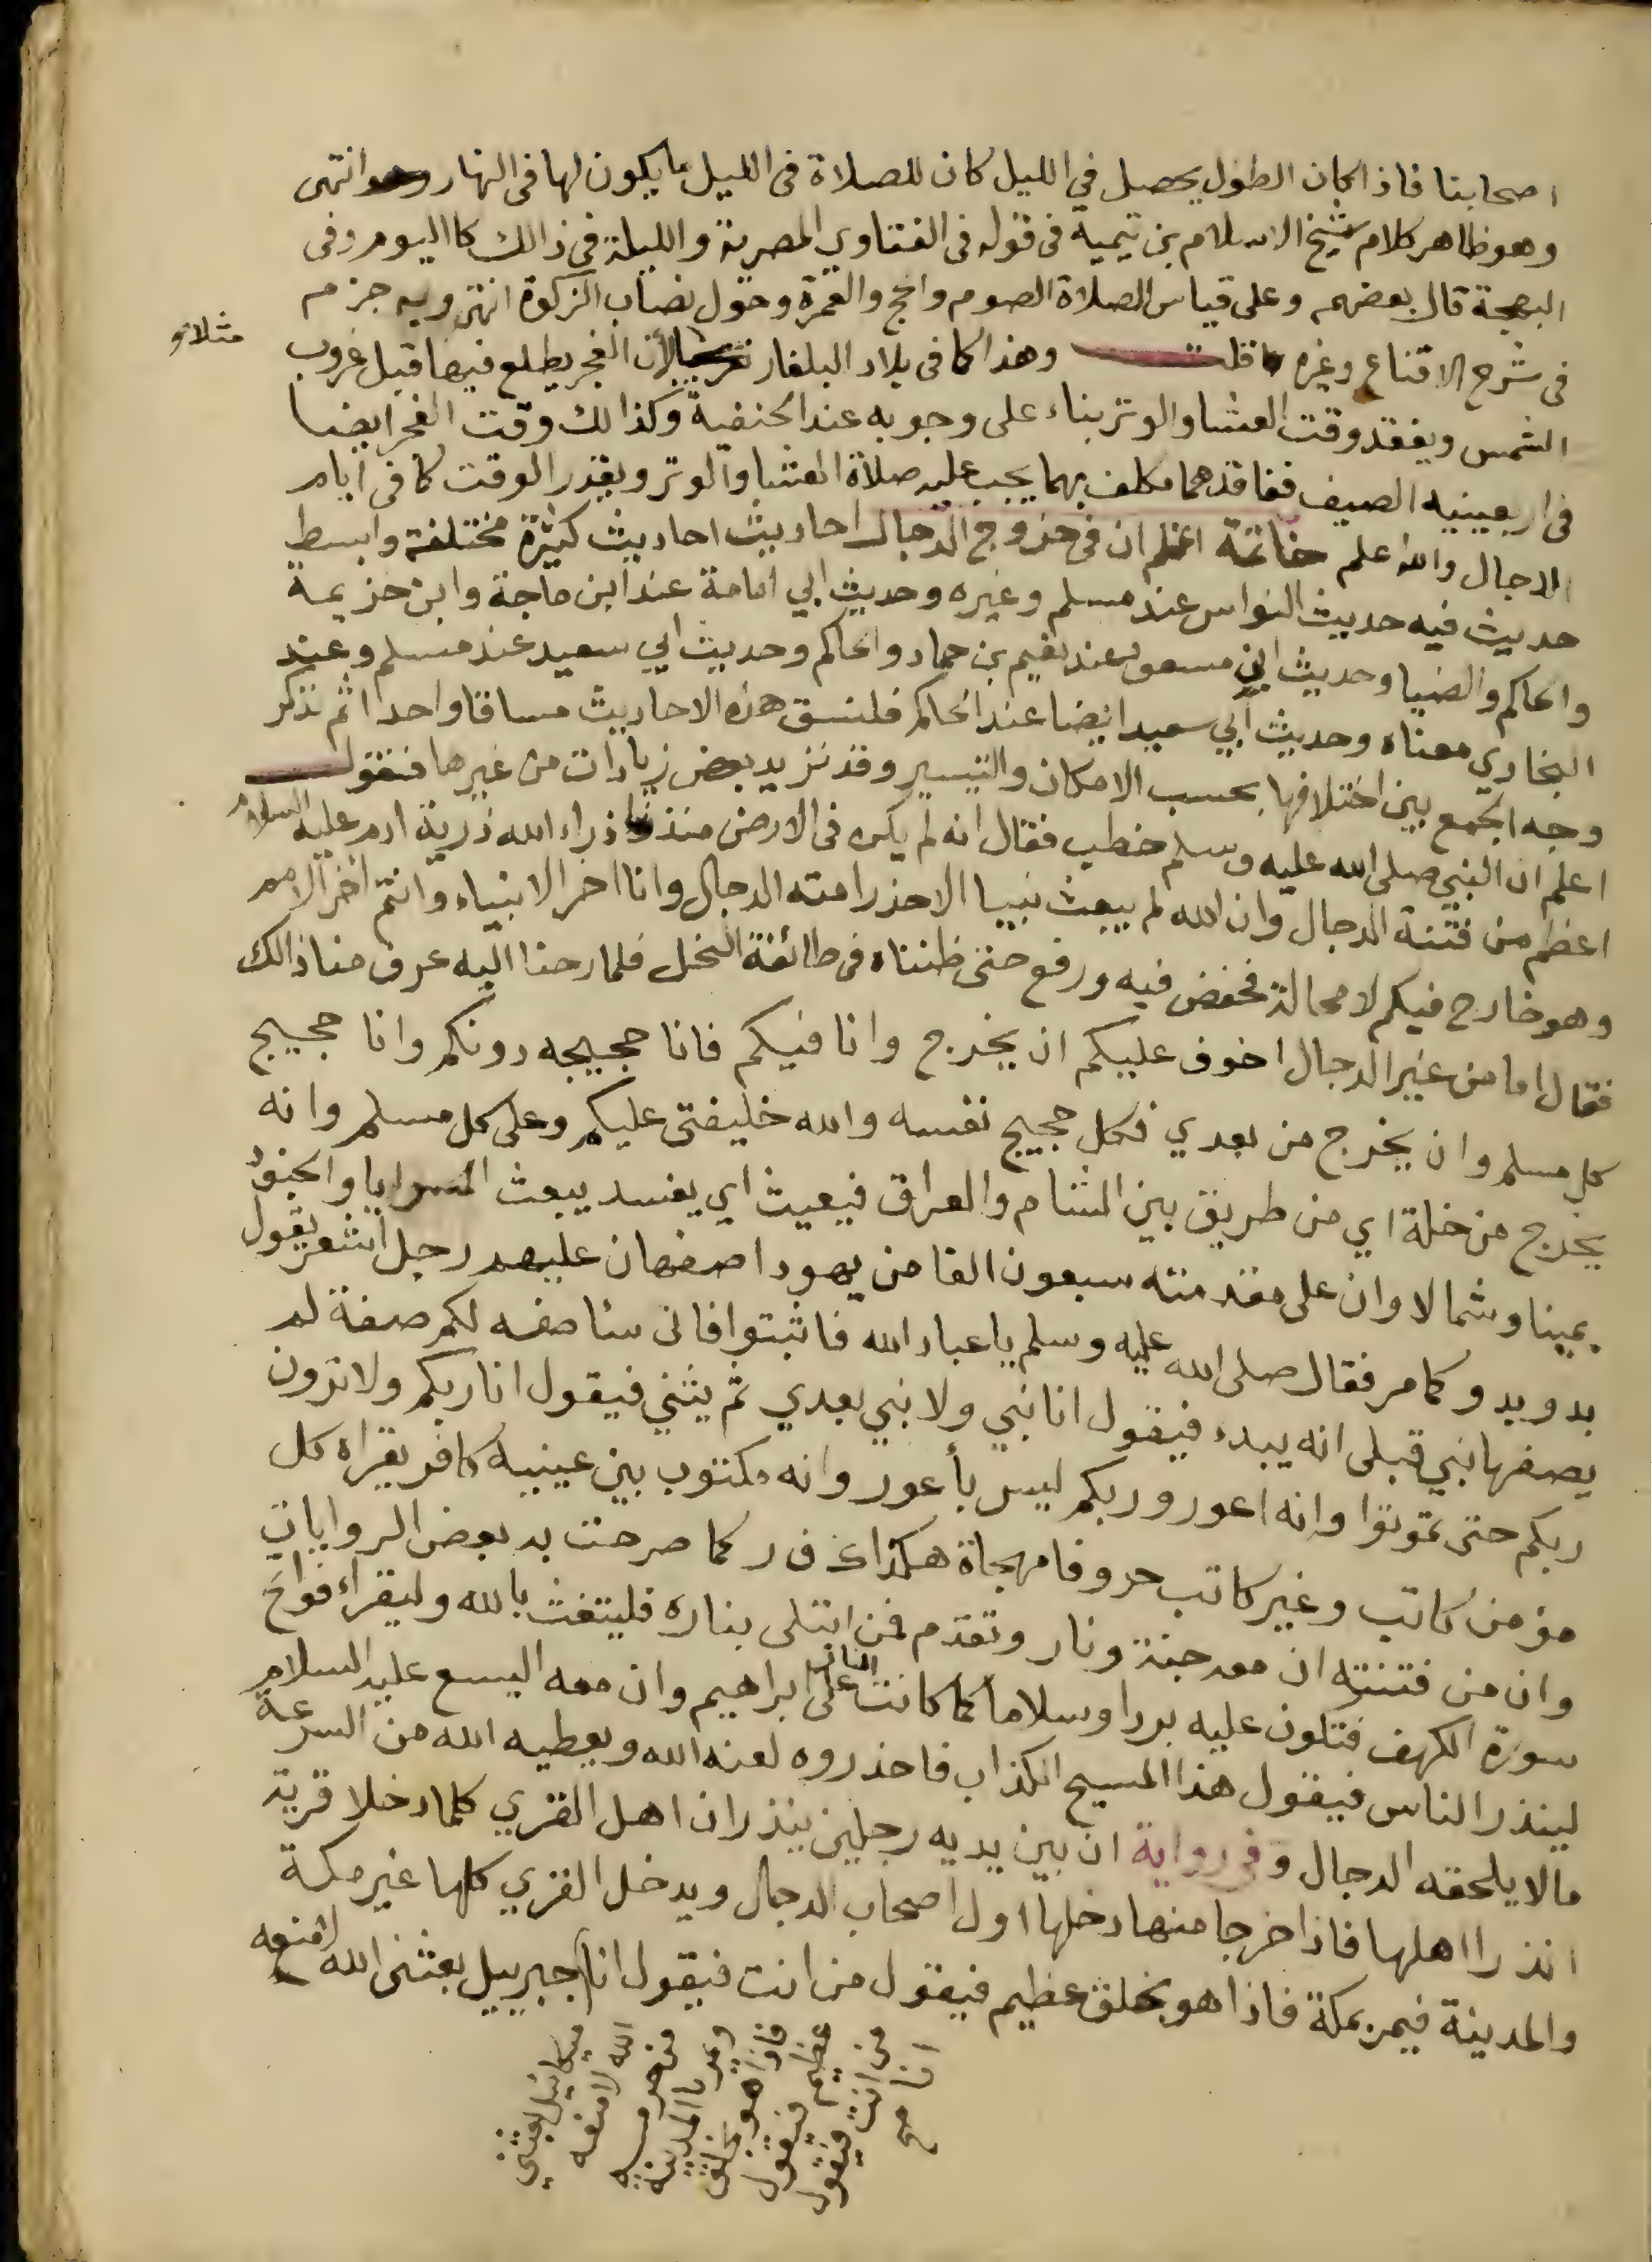 اصحابنا فاذا كان الطول يحصل في الليل كان للصلاة فى الليل ما يكون لها فى النهار انتهى
وهو ظاهر كلام شيخ الاسلام بن تيمية فى قوله فى الفتاوي المصرية والليلة فى ذالك كا اليوم وفى
البهجة قال بعضهم وعلى قياس الصلاة الصوم والحج والعمرة وحول نصاب الزكوة انتهى وبه جزم
فى شرح الاقناع وغيره قلت وهذا كما فى بلاد البلغار لأن الفجر يطلع فيها قبل غروب
مثلاو
الشمس ويفقد وقت العشا والوتر بناء على وجوبه عند الحنفية وكذالك وقت الفجر ايضا
فى اربعينيه الصيف ففاقدهما مكلف بهما يجب عليه صلاة العشا والوتر ويقدر الوقت كما فى ايام
الدجال والله اعلم خاتمة اعلم ان فى خروج الدجال احاديث احاديث كثيرة مختلفة وابسط
حديث فيه حديث النواس عند مسلم وغيره وحديث ابي امامة عند ابن ماجة وابن خزيمة
والحاكم والضيا وحديث ابن مسعود عند نعيم بن حماد والحاكم وحديث ابي سعيد عند مسلم وعند
البخاري معناه وحديث أبي سعيد ايضا عند الحاكم فلنسق هذه الاحاديث مساقا واحدا ثم نذكر
وجه الجمع بين اختلافها بحسب الامكان والتيسير وقد نزيد بعض زيادات من غيرها فنقول
اعلم ان النبي صلى الله عليه وسلم خطب فقال انه لم يكن فى الارض منذ ذراء الله ذرية ادم عليه السلام
اعظم من فتنة الدجال وان الله لم يبعث نبيا الا حذر امته الدجال وانا اخر الانبياء وانتم اخر الامم
وهو خارج فيكم لا محالة فخفض فيه ورفع حتى ظنناه فى طائفة النخل فلما رحنا اليه عرف منا ذالك
فقال اما من غير الدجال اخوف عليكم ان يخرج وانا فيكم فانا حجيجه دونكم وانا حجيج
كل مسلم وان يخرج من بعدي فكل حجيج نفسه والله خليفتى عليكم وعلى كل مسلم وانه
يخرج من خلة اي من طريق بين الشام والعراق فيعيث اي يفسد يبعث السرايا والجنود
يمينا وشمالا وان على مقدمته سبعون الفا من يهود اصفهان عليهم رجل اشعر يقول
بدو يدو كما مر فقال صلى الله عليه وسلم يا عباد الله فاثبتوا فانى ساصفه لكم صفة لم
يصفها نبي قبلى انه يبدء فيقول انا نبي ولا نبي بعدي ثم يثني فيقول انا ربكم ولا ترون
ربكم حتى تموتوا وانه اعور وربكم ليس بأعور وانه مكتوب بين عينيه كافر يقراه كل
مؤمن كاتب وغير كاتب حروفا مهجاة هكذا ك ف ر كما صرحت به بعض الروايات
وان من فتنته ان معه جنة ونار وتقدم فمن ابتلى بناره فليتغث بالله وليقراء فواتح
سورة الكهف فتكون عليه بردا وسلاما كما كانت النار على ابراهيم وان معه اليسع عليه السلام
لينذر الناس فيقول هذا المسيح الكذاب فاحذروه لعنه الله ويعطيه الله من السرعة
مالا يلحقه الدجال وفى رواية ان بين يديه رجلين ينذران اهل القري كلما دخلا قرية
انذرا اهلها فاذا خرجا منها دخلها اول اصحاب الدجال ويدخل القري كلها غير مكة
والمدينة فيمر بمكة فاذا هو بخلق عظيم فيقول من انت فيقول انا جبرييل بعثنى الله لامنعه
من حرمه ويمر بالمدينة فاذا هو بخلق عظيم فيقول من انت فيقول انا
ميكائيل بعثني الله لامنعه